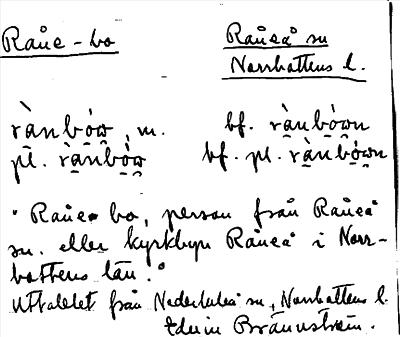 Råne-bo
Råneå sn
Norrbottens l.
ràn bów̯, m. bf. rànbówn
pl. rànbòw̯ bf. pl. rànbòwn
"Råne-bo, person från Råneå
sn. eller kyrkbyn Råneå i Norr-
bottens län."
Uttalet från Nederluleå sn, Norrbottens l.
Edvin Brännström.